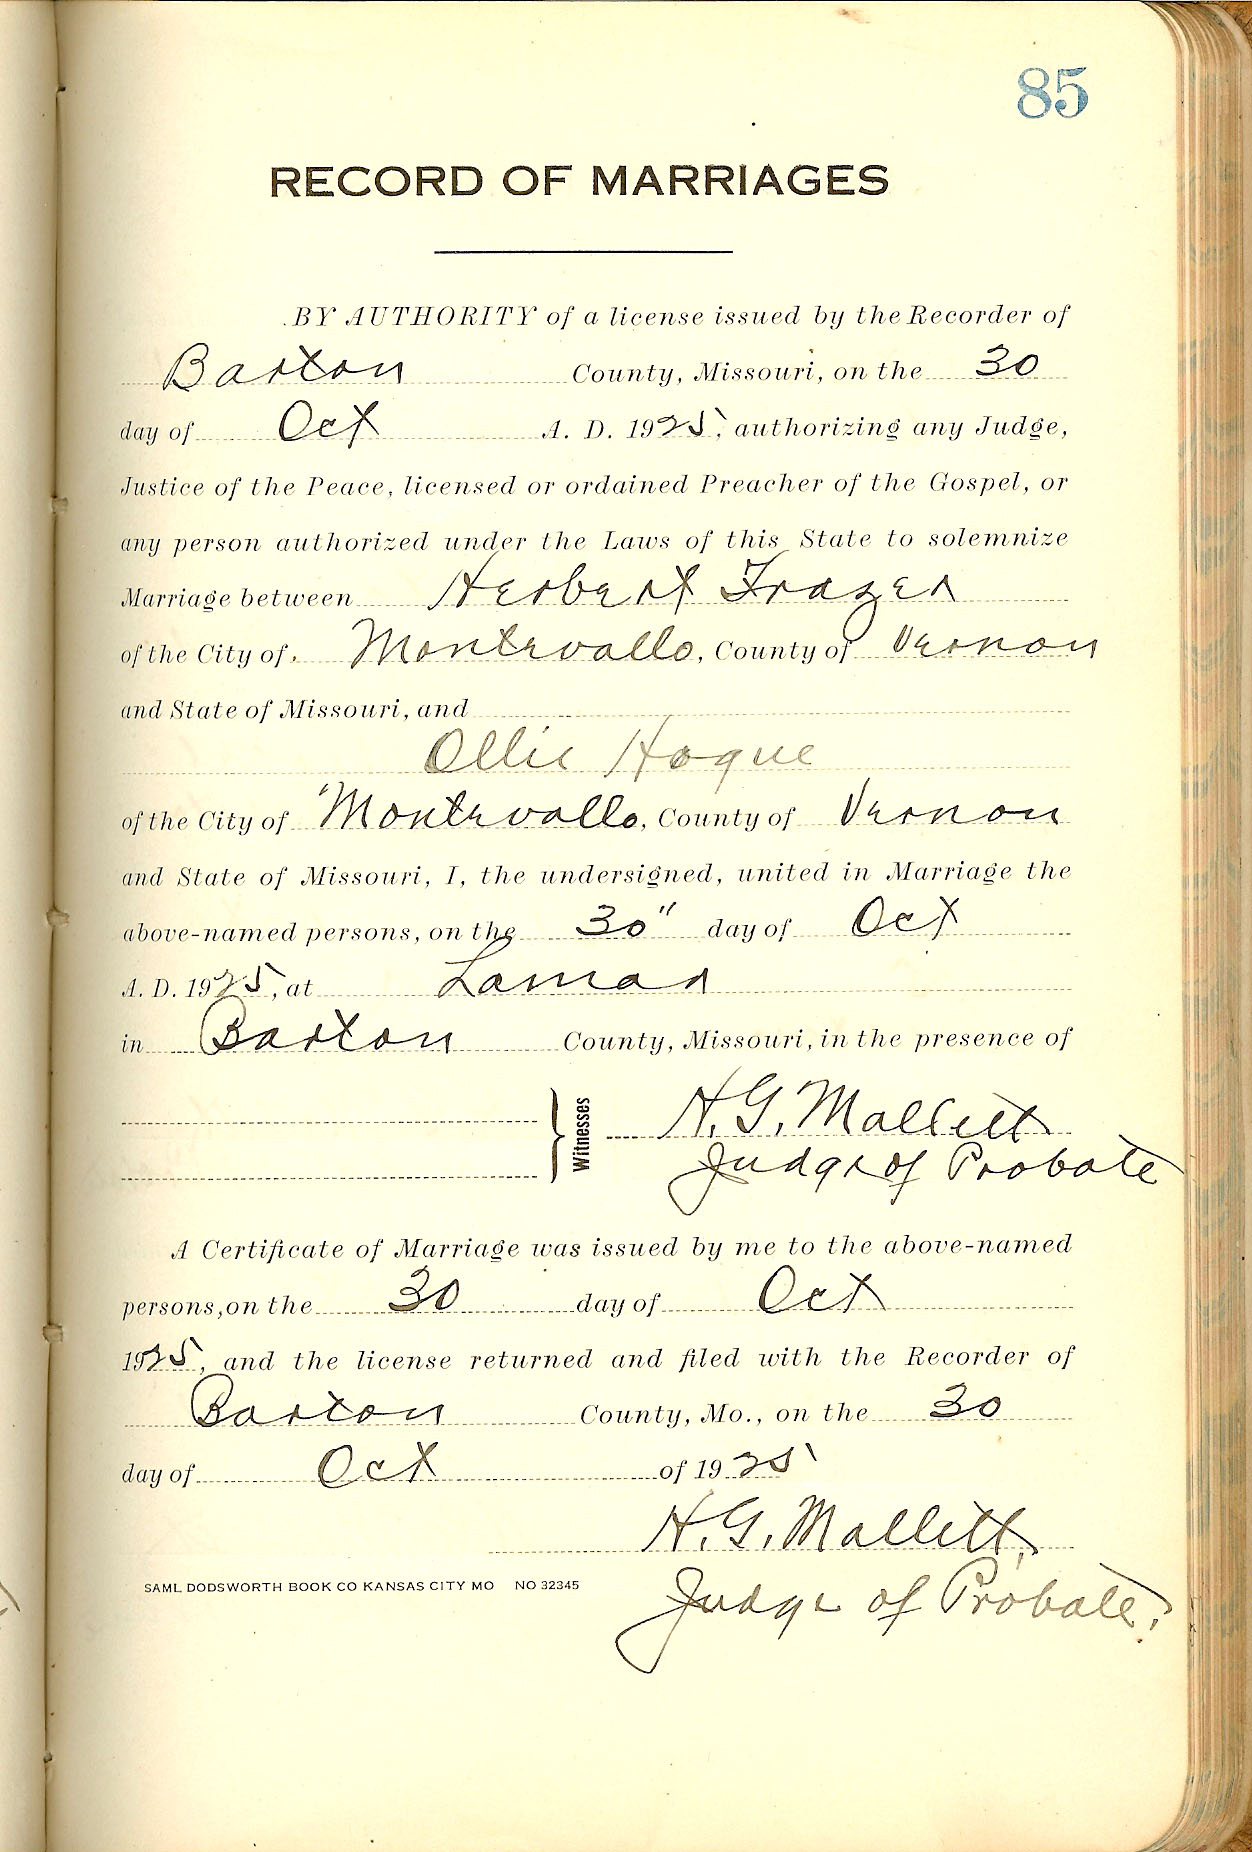 85
RECORD OF MARRIAGES
BY AUTHORITY of a license issued by the Recorder of
Barton County, Missouri, on the 30
day of Oct A. D. 1925, authorizing any Judge,
Justice of the Peace, licensed or ordained Preacher of the Gospel, or
any person authorized under the Laws of this State to solemnize
Marriage between Herbert Frazer
of the City of Montevallo, County of Vernon
and State of Missouri, and
Ollie Hogue
of the City of Montevallo, County of Vernon
and State of Missouri, I, the undersigned, united in Marriage the
above-named persons, on the 30" day of Oct
A. D. 1925, at Lamar
in Barton County, Missouri, in the presence of
Witnesses H. G. Mallett
Judge of Probate
A Certificate of Marriage was issued by me to the above-named
persons, on the 30 day of Oct
1925, and the license returned and filed with the Recorder of
Barton County, Mo., on the 30
day of Oct of 1925
H. G. Mallett,
SAML DODSWORTH BOOK CO KANSAS CITY MO NO 32345
Judge of Probate.